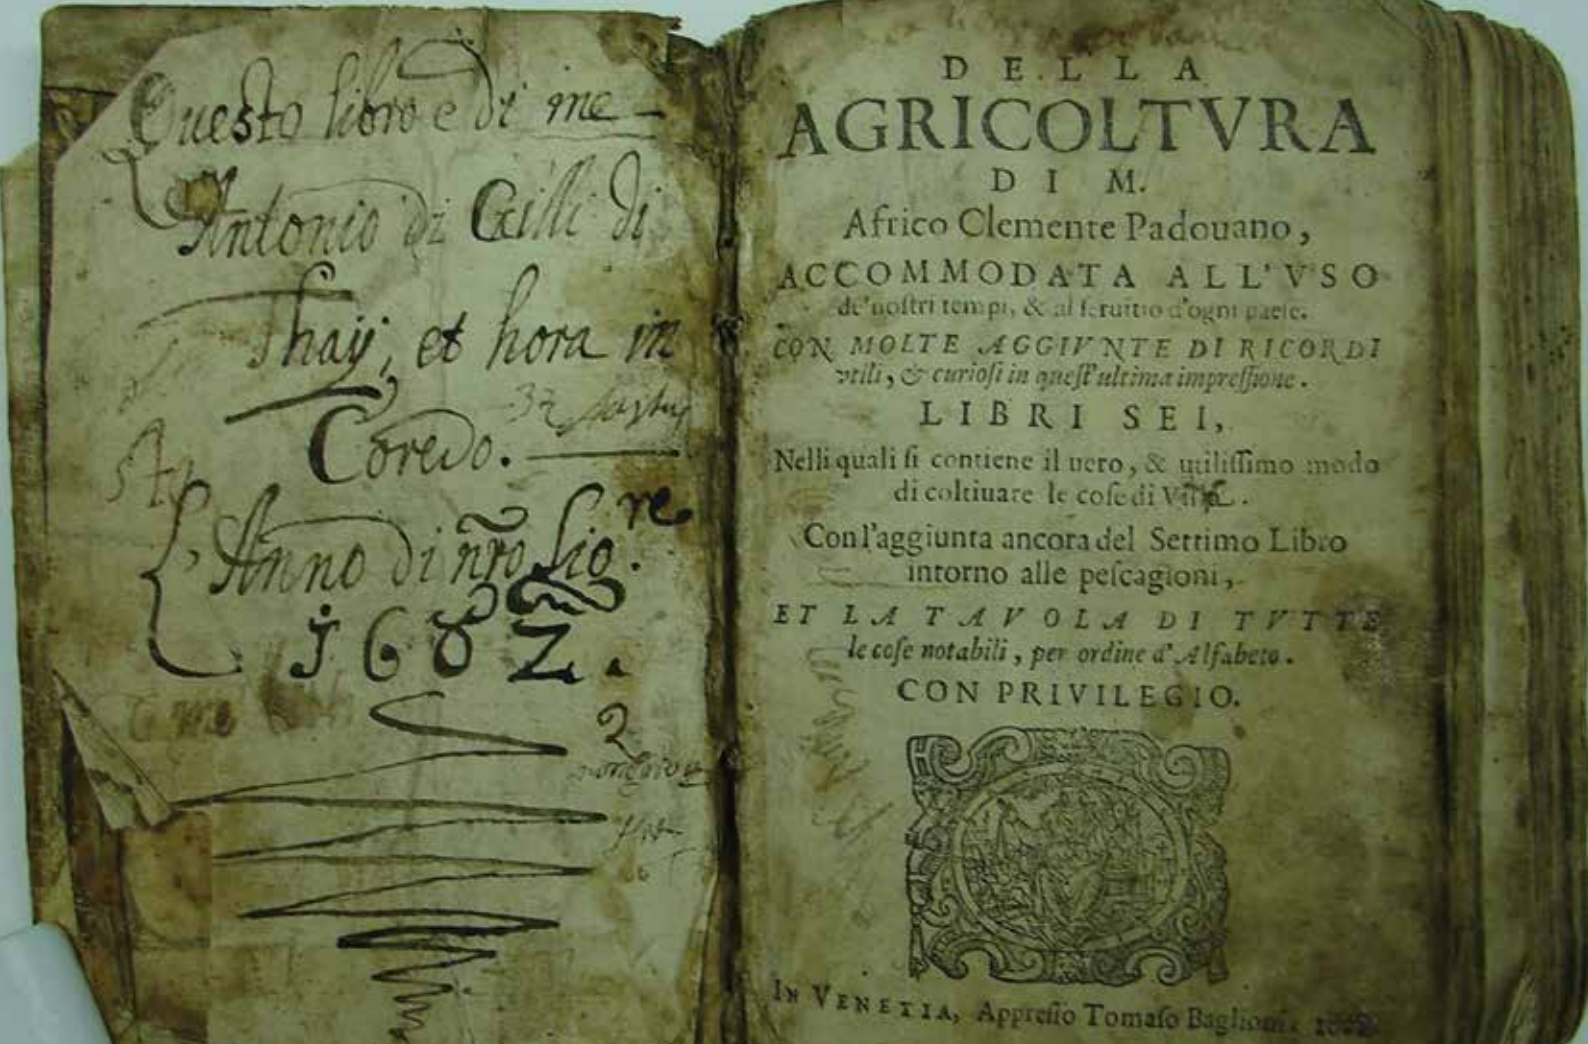 Questo libro è di me
Antonio di Gilli di
Thaÿ, et hora in
Coredo.
Anno di nr̃o Sig.re
1682.
2
DELLA
AGRICOLTVRA
DI M.
Africo Clemente Padouano,
ACCOMMODATA ALL'VSO
de' noſtri tempi, & al ſeruitio d'ogni paeſe.
CON MOLTE AGGIVNTE DI RICORDI
vtili, & curioſi in queſt'ultima impreſſione.
LIBRI SEI,
Nelli quali ſi contiene il uero, & utiliſſimo modo
di coltiuare le coſe di Villa.
Con l'aggiunta ancora del Settimo Libro
intorno alle peſcagioni,
ET LA TAVOLA DI TVTTE
le coſe notabili, per ordine d'Alfabeto.
CON PRIVILEGIO.
IN VENETIA, Appreſſo Tomaſo Baglioni.